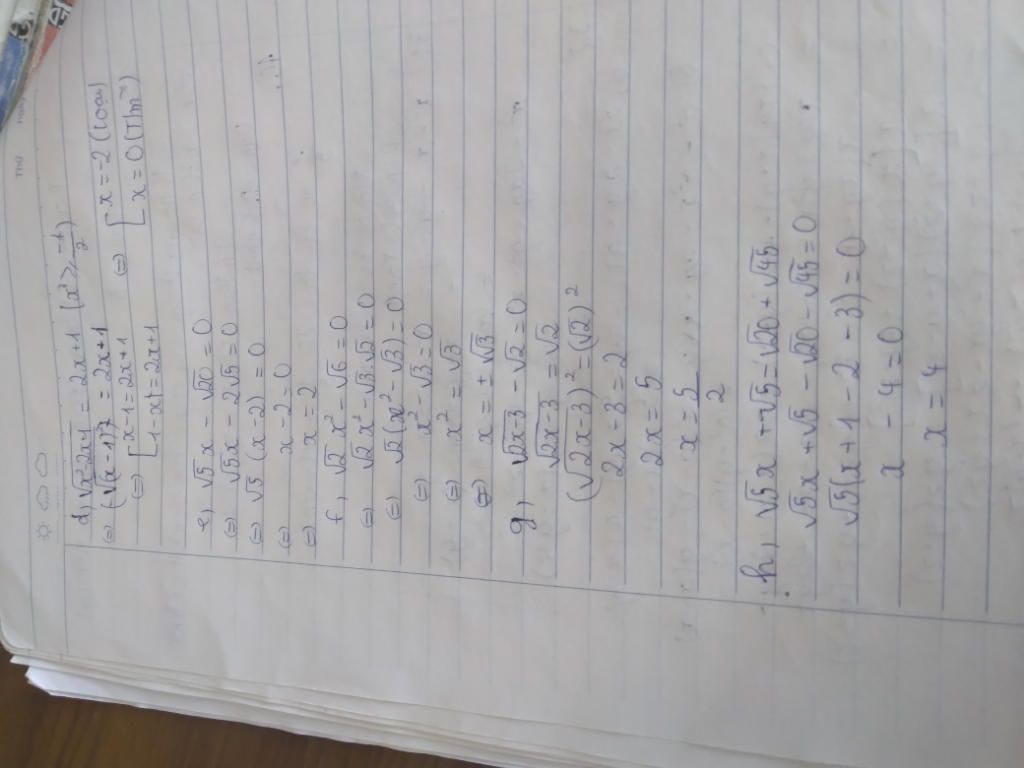 d, √x²-2x+1 = 2x+1 (x ≥ -1/2)
⇔ √(x-1)² = 2x+1
⇔ [x-1=2x+1 ⇔ [x=-2 (Loại)
[1-x=2x+1 [x=0 (Thm)
e, √5x - √20 = 0
⇔ √5x - 2√5 = 0
⇔ √5(x-2) = 0
⇔ x-2=0
⇔ x=2
f, √2x² - √6 = 0
⇔ √2x² - √3.√2 = 0
⇔ √2(x² - √3) = 0
⇔ x² - √3 = 0
⇔ x² = √3
⇔ x = ±√√3
g, √2x-3 - √2 = 0
√2x-3 = √2
(√2x-3)² = (√2)²
2x-3=2
2x=5
x = 5/2
h, √5x + √5 = √20 + √45
√5x + √5 - √20 - √45 = 0
√5(x+1-2-3) = 0
x - 4 = 0
x = 4